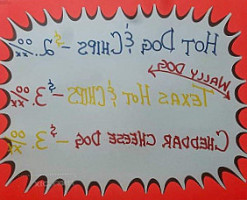 HOT DOG & CHIPS - $2.00/xx
WALLY DOG
TEXAS HOT & CHIPS - $3.00/xx
CHEDDAR CHEESE DOG - $3.00/xx